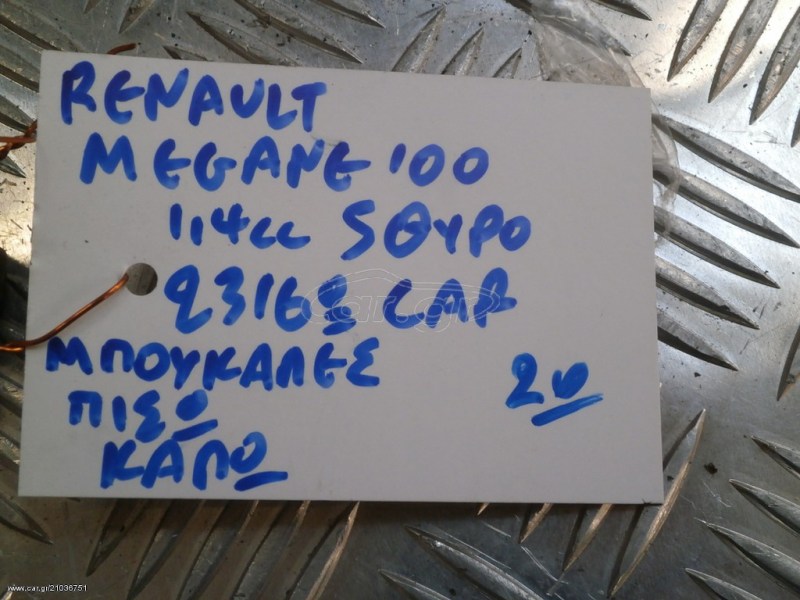 RENAULT
MEGANE '00
1,4cc 5ΘΥΡΟ
CAR
ΜΠΟΥΚΑΛΕΣ
20
ΠΙΣΩ
ΚΑΠΟ
www.car.gr/21036751